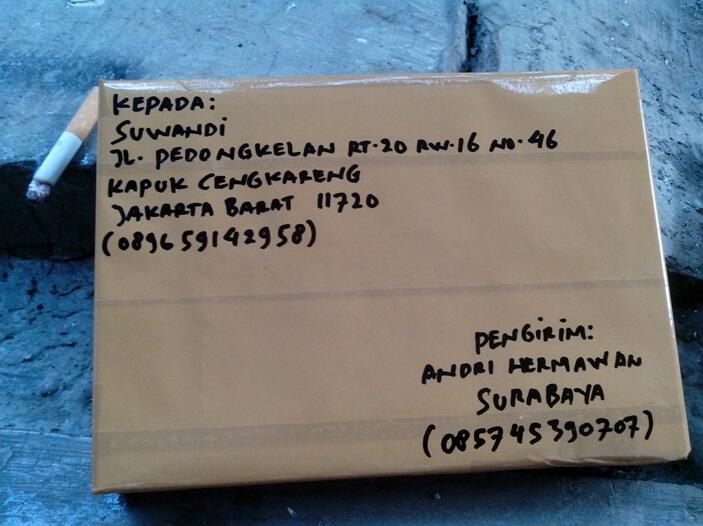 KEPADA:
SUWANDi
JL. PEDONGKELAN RT.20 RW.16 NO.46
KAPUK CENGKARENG
JAKARTA BARAT 11720
(089659142958)
PENGIRIM:
ANDRI HERMAWAN
SURABAYA
(085745390707)